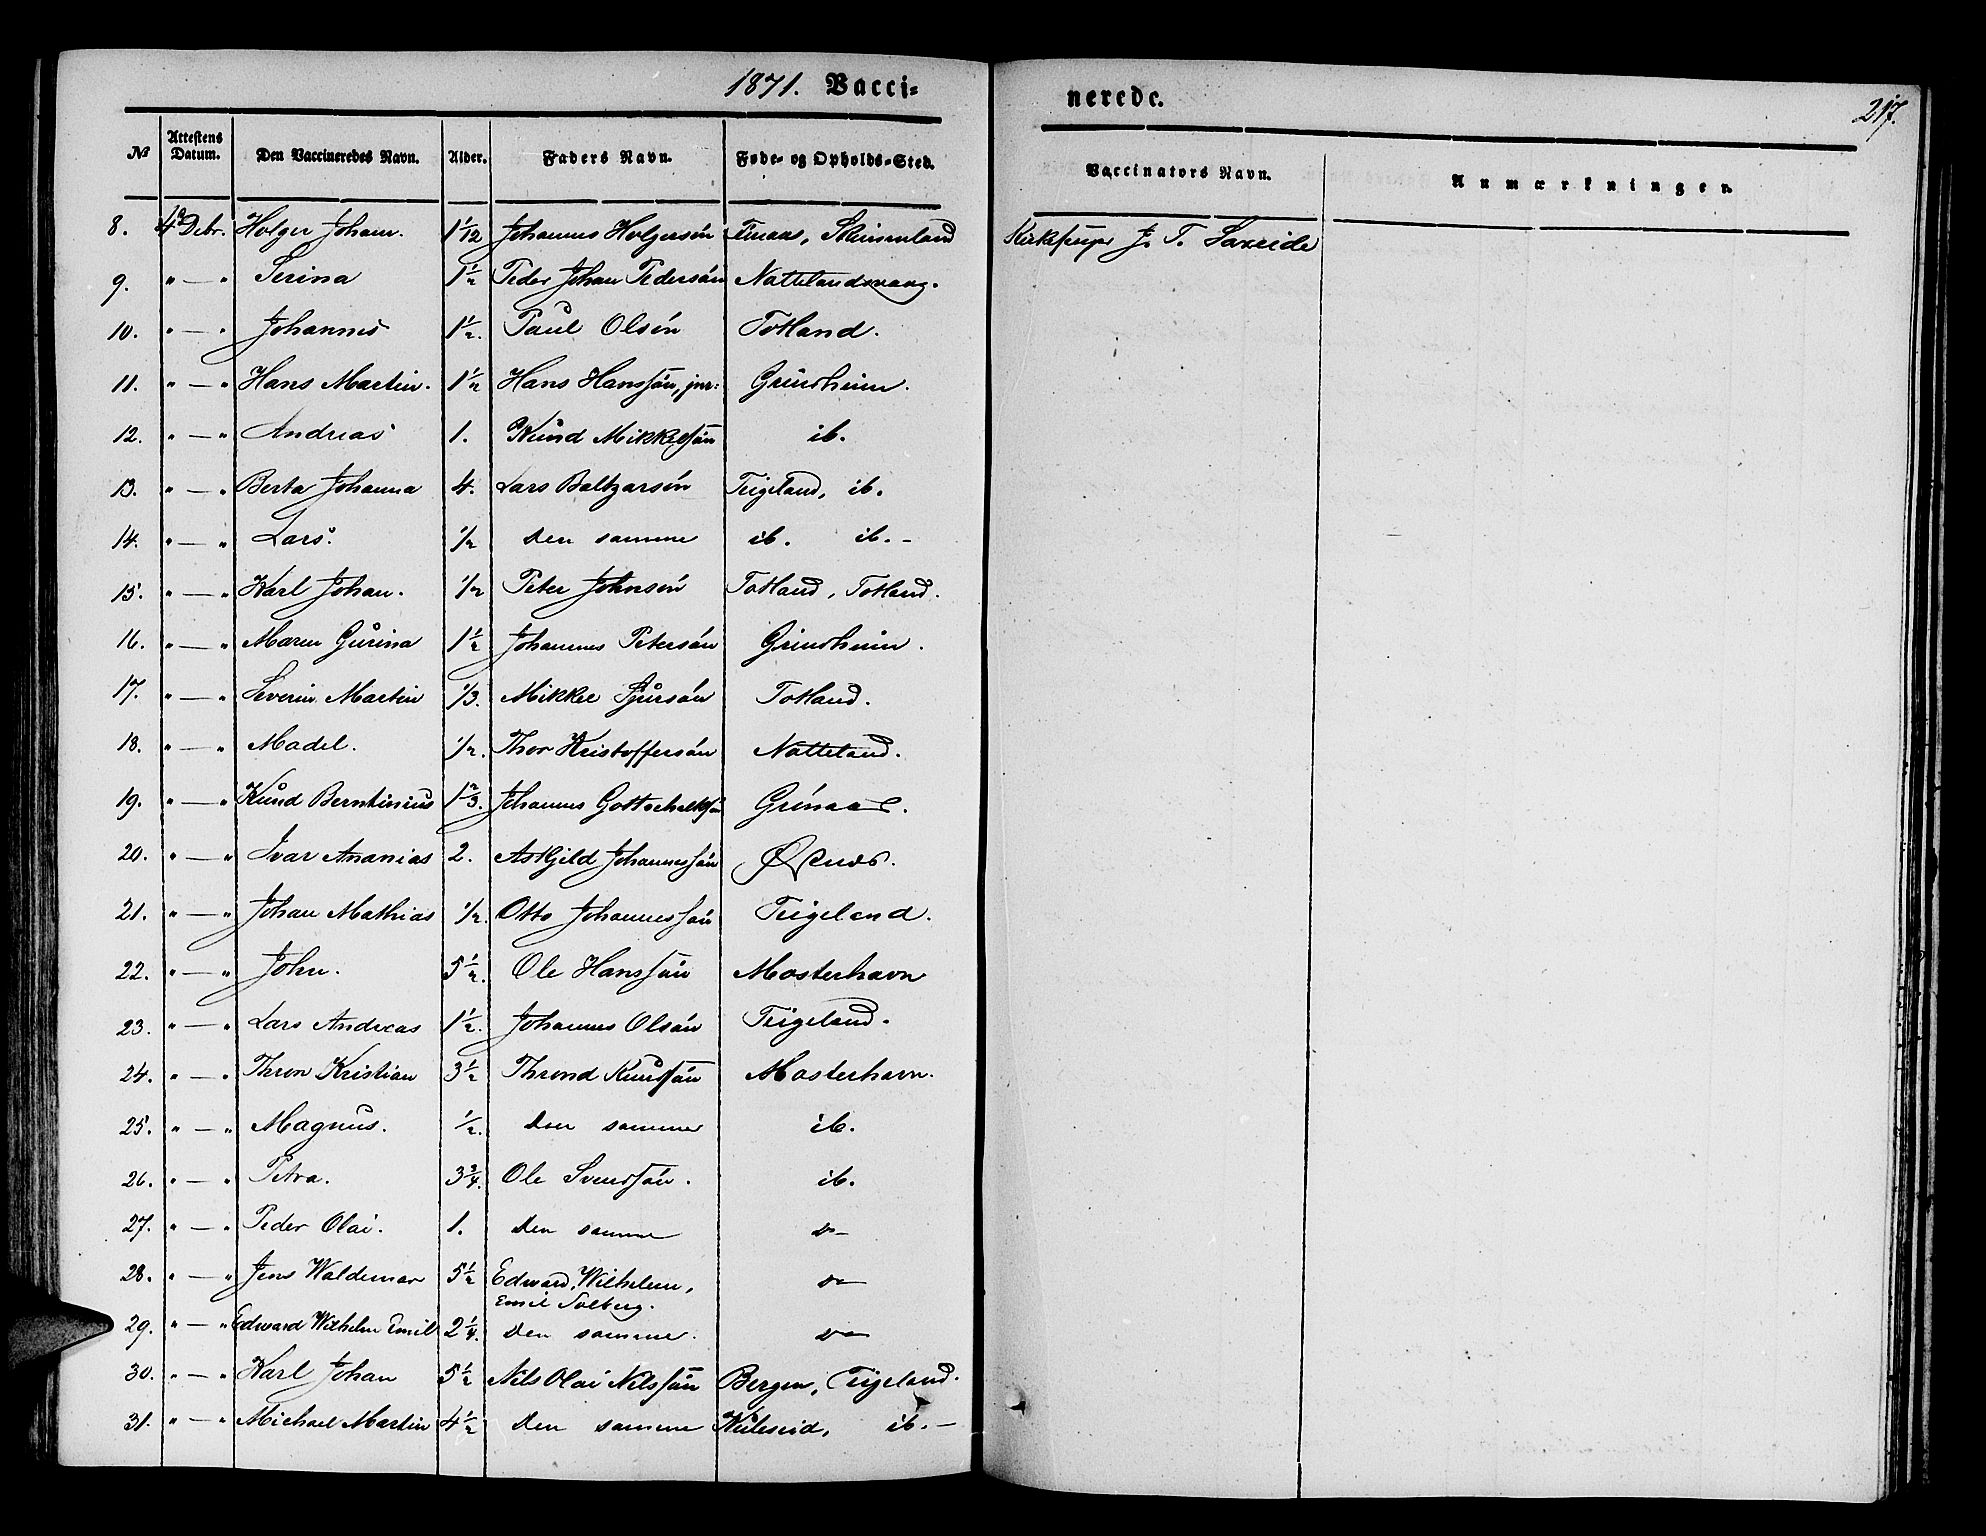 1871. Vacci= nerede. 217.
№ Attestens Datum. Den Vaccineredes Navn. Alder. Faders Navn. Føde- og Opholds-Sted. Vaccinators Navn. Anmærkninger.
8. 4 Debr. Holger Johan. 1 1/12 Johannes Holgersøn Finaas, J. T. Saxeide
9. " — " Serina 1 1/2 Peder Johan Pedersøn Nattelandsvaag.
10. " — " Johannes 1 1/2. Paul Olsøn Totland.
11. " — " Hans Martin. 1 1/2 Hans Hanssøn, jnr: Grindheim.
12. " — " Andreas 1. Knud Mikkelsøn ib.
13. " — " Berta Johanna 4. Lars Baltzarsøn Teigeland, ib.
14. " — " Lars. 1/2 den samme ib. ib. -
15. " — " Karl Johan. 1/2 Peter Johnsøn Totland, Totland.
16. " — " Maren Gurina 1 1/2 Johannes Petersøn Grindheim.
17. " — " Severin Martin 1/3. Mikkel Sjursøn Totland.
18. " — " Madel. 1/2. Thor Kristoffersøn Natteland.
19. " — " Knud Berntinius 1 2/3. Johannes Gottschalksøn Grønaas.
20. " — " Ivar Ananias 2. Askjeld Johannessøn Øxnes.
21. " — " Johan Mathias 1/2. Otto Johannessøn Teigeland.
22. " — " John. 5 1/2. Ole Hanssøn Mosterhavn
23. " — " Lars Andreas 1 1/2. Johannes Olsøn Teigeland.
24. " — " Thron Kristian 3 1/2 Thrond Knudsøn Mosterhavn.
25. " — " Magnus. 1/2. den samme ib.
26. " — " Petra. 3 3/4. Ole Svendsøn. ib.
27. " — " Peder Olai. 1. den samme
28. " — " Jens Waldemar 5 1/2 Edward, Wilhelm,
Emil Solberg.
29. " — " Edward Wilhelm Emil 2 1/4. den samme.
30. " — " Karl Johan 5 1/2 Nils Olai Nilssøn Bergen, Teigeland.
31. " — " Michael Martin 4 1/2 den samme Kuleseid, ib. —